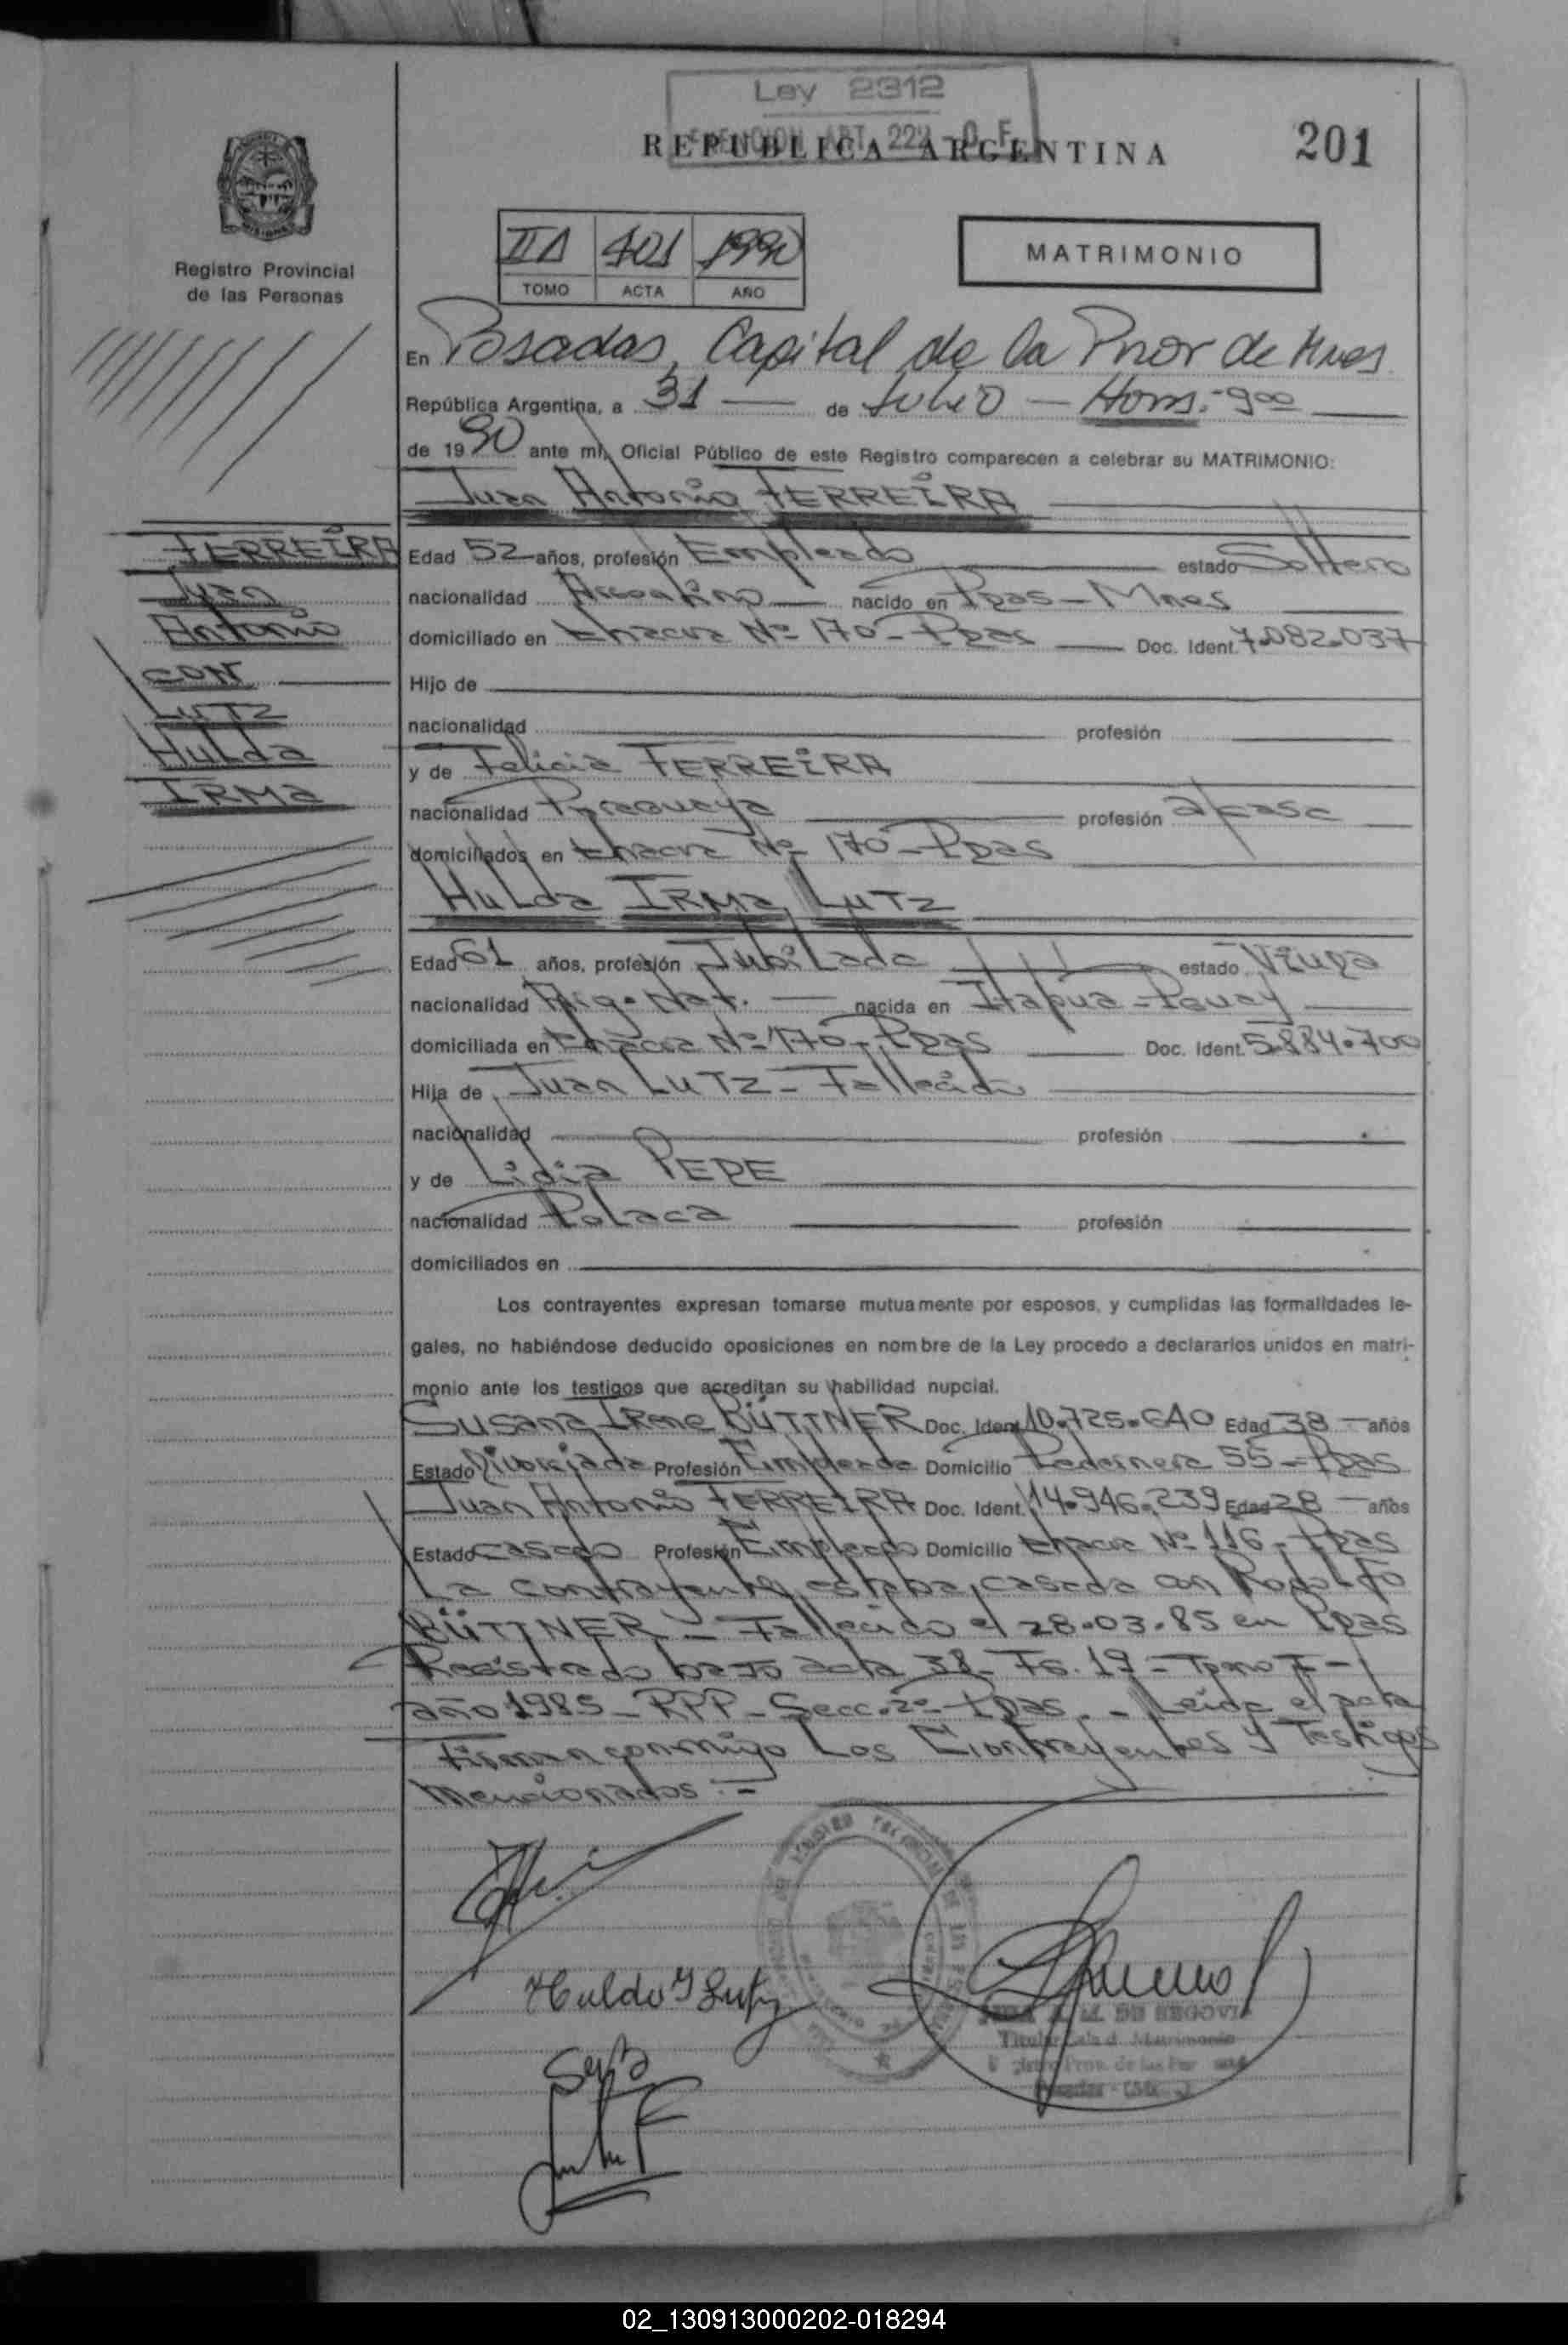 Ley 2312
REPUBLICA ARGENTINA
201
Registro Provincial
de las Personas
401 1990
TOMO ACTA AÑO
MATRIMONIO
En Posadas, Capital de la de Mnes
República Argentina, a 31 de Julio - Horas:-9oo
de 1990 ante mí, Oficial Público de este Registro comparecen a celebrar su MATRIMONIO:
Juan Antonio FERREIRA
FERREIRA
Juan
Antonio
CON
LUTZ
Hulda
IRMa
Edad 52 años, profesión Empleado estado Soltero
nacionalidad Argentino nacido en Pdas-Mnes
domiciliado en Chacra Nº 170-Pdas Doc. Ident. 7.082.037
Hijo de
nacionalidad profesión
y de Felicia FERREIRA
nacionalidad Paraguaya profesión
domiciliados en Chacra Nº 170-Pdas
HuLda IRMa LUTZ
Edad 61 años, profesión JubiLada estado Viuda
nacionalidad Arg. Nat. nacida en Itapua-Pguay
domiciliada en Chacra Nº 170-Pdas Doc. Ident. 5.884.700
Hija de Juan LUTZ-Fallecido
nacionalidad profesión
y de Lidia PEPE
nacionalidad PoLaca profesión
domiciliados en
Los contrayentes expresan tomarse mutuamente por esposos, y cumplidas las formalidades le-
gales, no habiéndose deducido oposiciones en nombre de la Ley procedo a declararlos unidos en matri-
monio ante los testigos que acreditan su habilidad nupcial.
Susana IRene BÜTTNER Doc. Ident. 10.725.640 Edad 38 años
Estado Profesión Empleada Domicilio Pedernera 55-Pdas
Juan Antonio FERREIRA Doc. Ident. 14.946.239 Edad 28 años
Estado casado Profesión Empleado Domicilio Chacra Nº 116-Pdas
La contrayente, estaba, casada con RodoLfo
BÜTTNER - Fallecido el 28.03.85 en Pdas
Registrado bajo acta 38- Fs. 19- Tomo I-
año 1985- RPP- Secc. 2º- Pdas.- Leida el acta
Firman conmigo Los Contrayentes y Testigos
mencionados:-
DE SEGOVIA
02_130913000202-018294